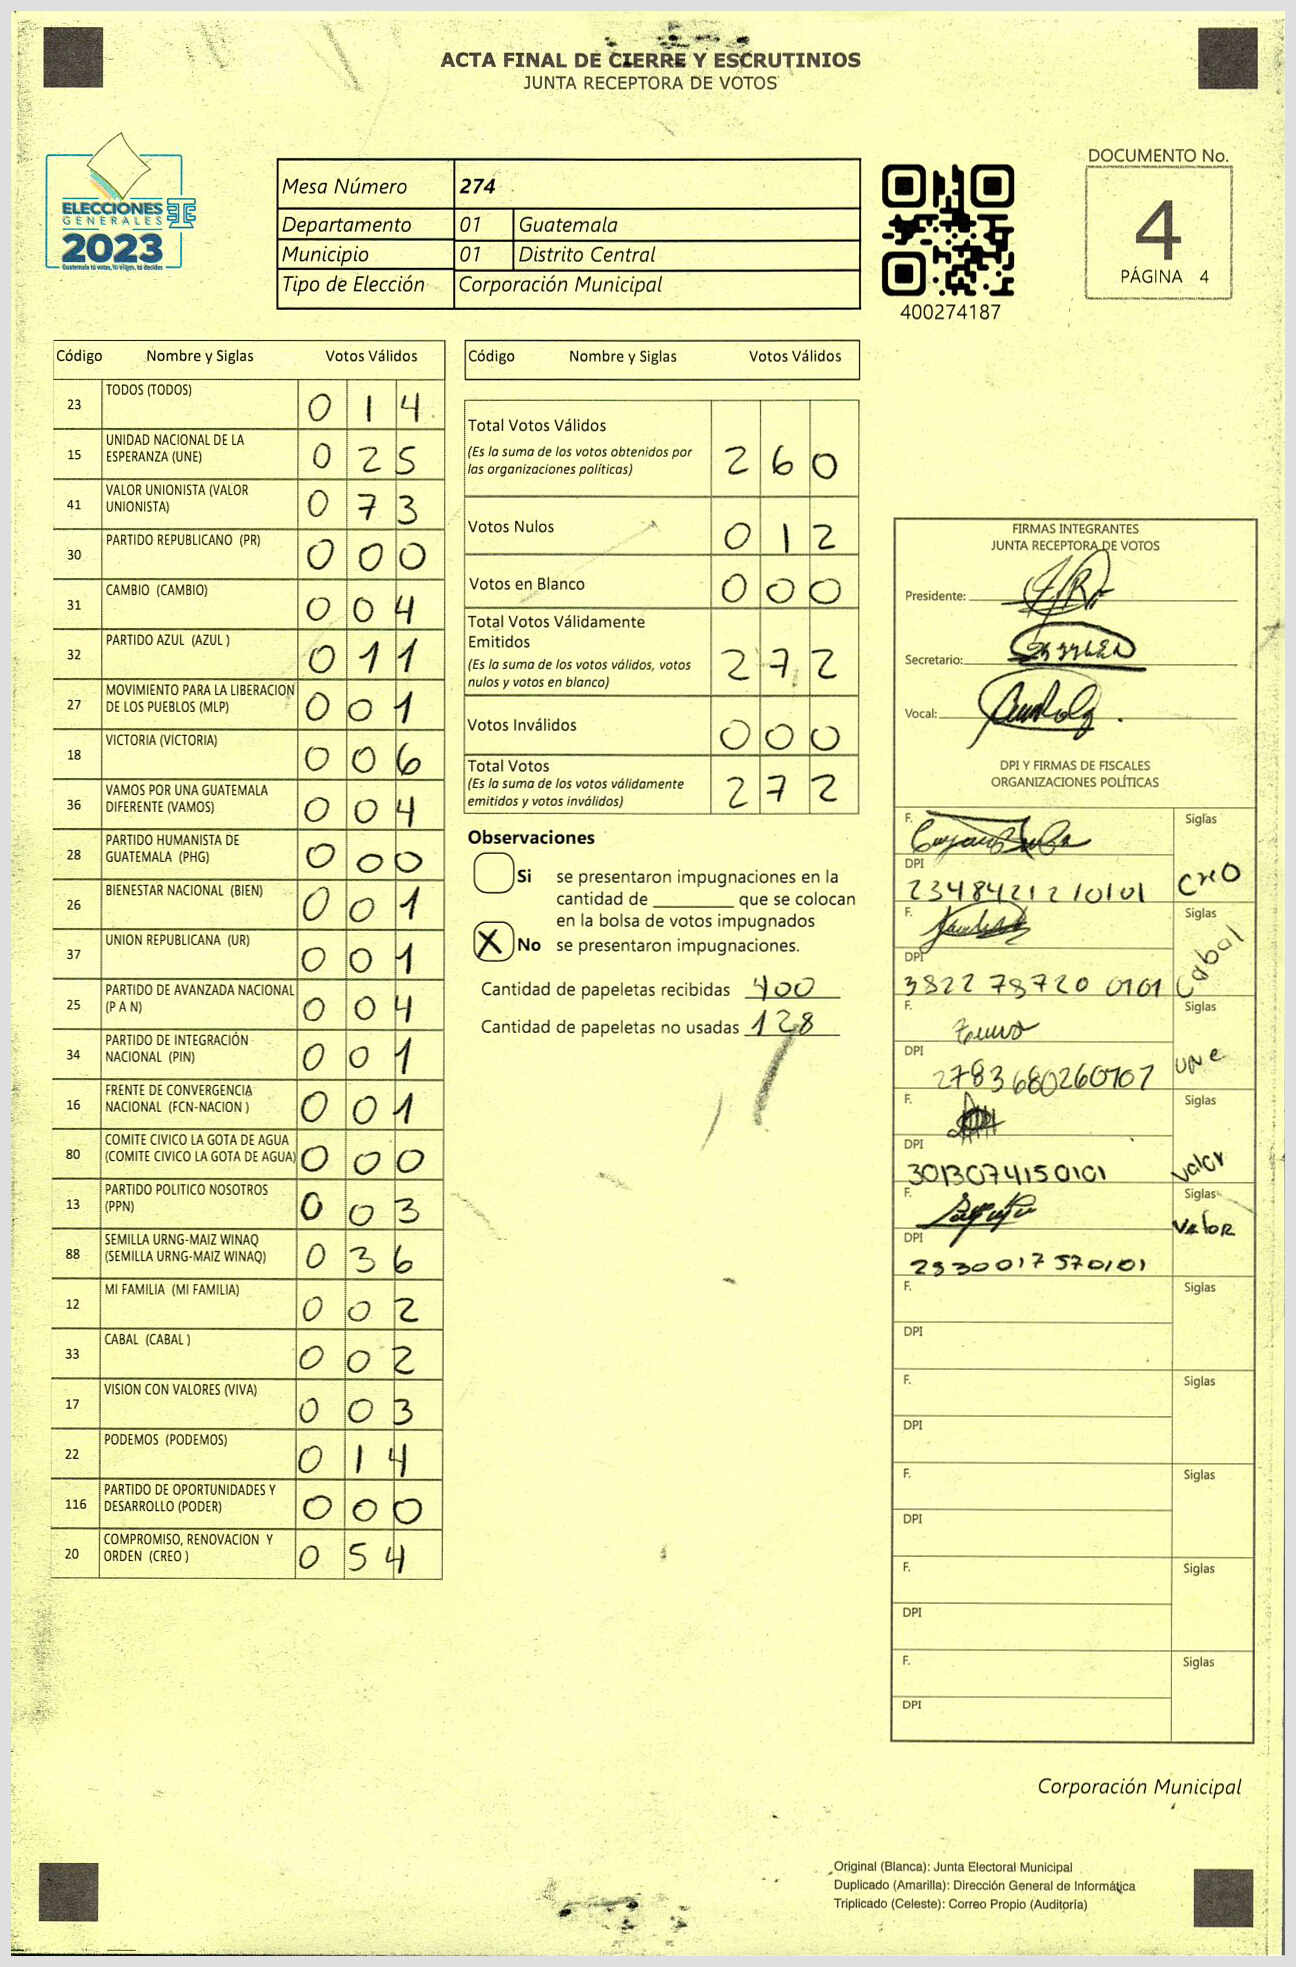 ACTA FINAL DE CIERRE Y ESCRUTINIOS
JUNTA RECEPTORA DE VOTOS
ELECCIONES
GENERALES
2023
Guatemala tú votas, tú eliges, tú decides
Mesa Número 274
Departamento 01 Guatemala
Municipio 01 Distrito Central
Tipo de Elección Corporación Municipal
400274187
DOCUMENTO No.
4
PÁGINA 4
Código Nombre y Siglas Votos Válidos
23 TODOS (TODOS) 0 1 4
15 UNIDAD NACIONAL DE LA
ESPERANZA (UNE) 0 2 5
41 VALOR UNIONISTA (VALOR
UNIONISTA) 0 7 3
30 PARTIDO REPUBLICANO (PR) 0 0 0
31 CAMBIO (CAMBIO) 0 0 4
32 PARTIDO AZUL (AZUL ) 0 1 1
27 MOVIMIENTO PARA LA LIBERACION
DE LOS PUEBLOS (MLP) 0 0 1
18 VICTORIA (VICTORIA) 0 0 6
36 VAMOS POR UNA GUATEMALA
DIFERENTE (VAMOS) 0 0 4
28 PARTIDO HUMANISTA DE
GUATEMALA (PHG) 0 0 0
26 BIENESTAR NACIONAL (BIEN) 0 0 1
37 UNION REPUBLICANA (UR) 0 0 1
25 PARTIDO DE AVANZADA NACIONAL
(P A N) 0 0 4
34 PARTIDO DE INTEGRACIÓN
NACIONAL (PIN) 0 0 1
16 FRENTE DE CONVERGENCIA
NACIONAL (FCN-NACION ) 0 0 1
80 COMITE CIVICO LA GOTA DE AGUA
(COMITE CIVICO LA GOTA DE AGUA) 0 0 0
13 PARTIDO POLITICO NOSOTROS
(PPN) 0 0 3
88 SEMILLA URNG-MAIZ WINAQ
(SEMILLA URNG-MAIZ WINAQ) 0 3 6
12 MI FAMILIA (MI FAMILIA) 0 0 2
33 CABAL (CABAL ) 0 0 2
17 VISION CON VALORES (VIVA) 0 0 3
22 PODEMOS (PODEMOS) 0 1 4
116 PARTIDO DE OPORTUNIDADES Y
DESARROLLO (PODER) 0 0 0
20 COMPROMISO, RENOVACION Y
ORDEN (CREO ) 0 5 4
Código Nombre y Siglas Votos Válidos
Total Votos Válidos
(Es la suma de los votos obtenidos por
las organizaciones políticas) 2 6 0
Votos Nulos 0 1 2
Votos en Blanco 0 0 0
Total Votos Válidamente
Emitidos
(Es la suma de los votos válidos, votos
nulos y votos en blanco) 2 7 2
Votos Inválidos 0 0 0
Total Votos
(Es la suma de los votos válidamente
emitidos y votos inválidos) 2 7 2
Observaciones
Si se presentaron impugnaciones en la
cantidad de ________ que se colocan
en la bolsa de votos impugnados
X No se presentaron impugnaciones.
Cantidad de papeletas recibidas 400
Cantidad de papeletas no usadas 128
FIRMAS INTEGRANTES
JUNTA RECEPTORA DE VOTOS
Presidente:
Secretario:
Vocal:
DPI Y FIRMAS DE FISCALES
ORGANIZACIONES POLÍTICAS
F. Siglas
DPI
2348421210101 CREO
F. Siglas
DPI
3822 78720 0101 Cabal
F. Siglas
DPI
2783680260707 une
F. Siglas
DPI
3013074150101 Valor
F. Siglas
DPI VALOR
2330017570101
F. Siglas
DPI
F. Siglas
DPI
F. Siglas
DPI
F. Siglas
DPI
F. Siglas
DPI
Corporación Municipal
Original (Blanca): Junta Electoral Municipal
Duplicado (Amarilla): Dirección General de Informática
Triplicado (Celeste): Correo Propio (Auditoría)